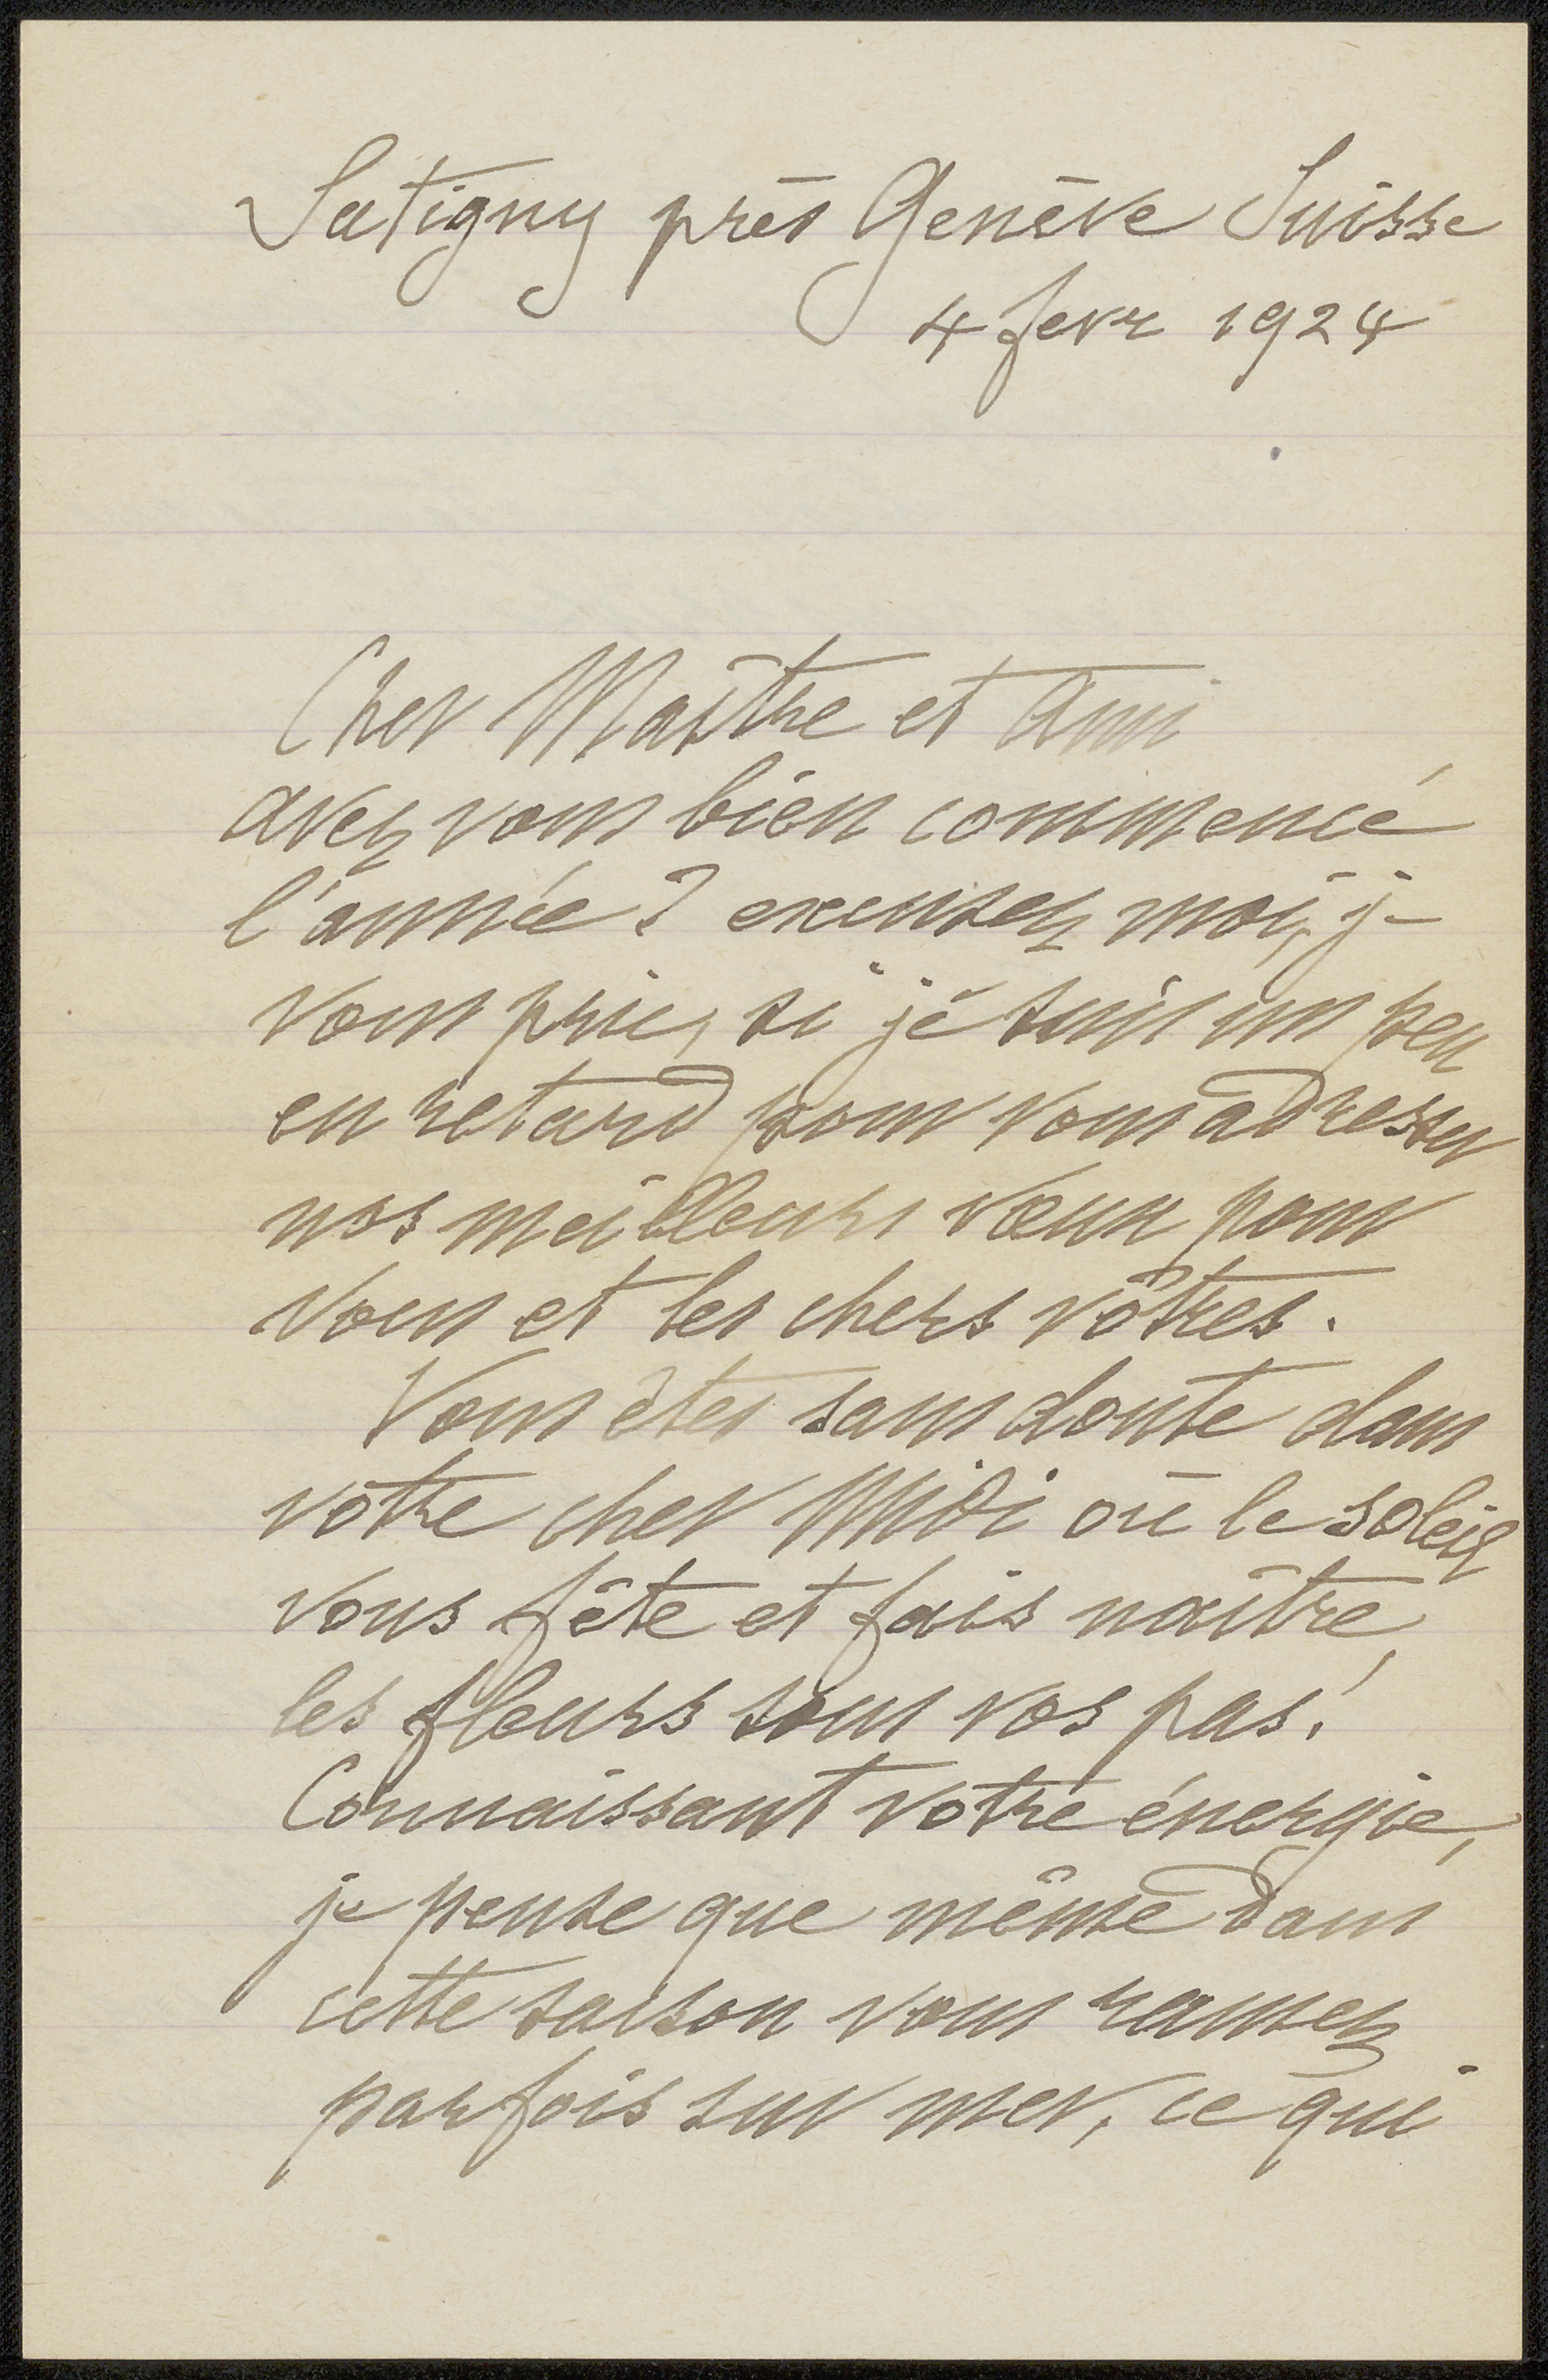 Satigny près Genève Suisse
4 fevr 1924
Cher Maître et Ami
avez vous bien commencé
l'année ? excusez moi, je
vous prie, si je suis un peu
en retard pour vous adresser
nos meilleurs vœux pour
vous et les chers vôtres.
Vous êtes sans doute dans
votre cher Midi où le soleil
vous fête et fais naître
les fleurs sous vos pas!
Connaissant votre énergie,
je pense que même dans
cette saison vous ramez
parfois sur mer, ce qui